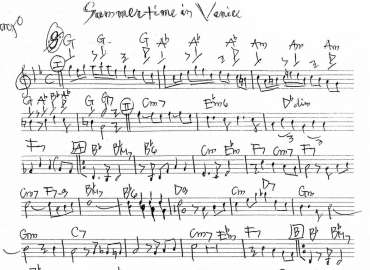 Summertime in Venice
G G- G A♭ A♭ A♭ Am Am Am
I
G A♭ B♭ A♭ G G7 II Cm7 E♭m6 D♭dim
F7 A B♭ B♭M7 B♭6 Cm E♭m F7 Cm7 F7
Cm7 F7-9 B♭M7 B♭6 D9 Cm D7 Gm
Gm C7 Cm7 E♭m F7 B B♭ B♭M7